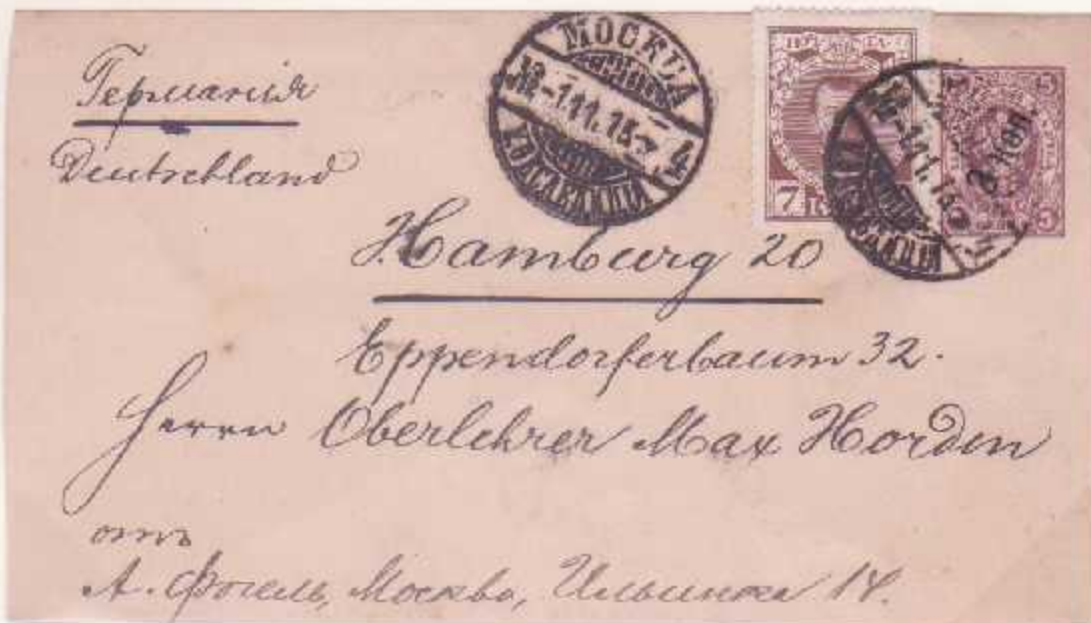 Германія
Deutschland
МОСКВА
4
7
5
5
Hamburg 20
Eppendorferbaum 32.
Herrn Oberlehrer Max Horden
отъ
А. Фогель, Москва, Ильинка 14.